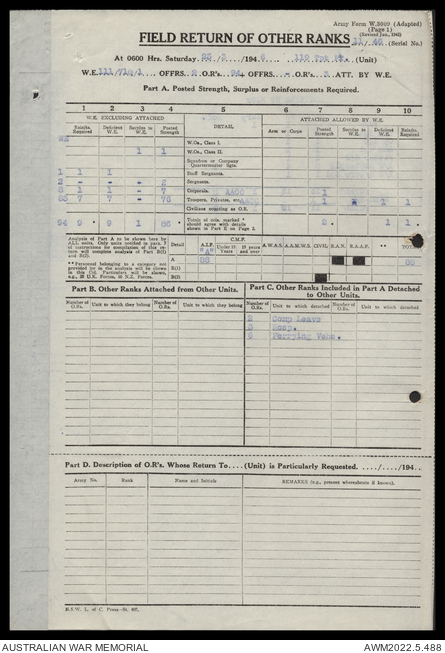 Army Form W.3009 (Adapted)
(Page 1)
(Revised Jan., 1943)
FIELD RETURN OF OTHER RANKS
11/ (Serial No.)
At 0600 Hrs. Saturday 194 (Unit)
W.E. OFFRS. 2 O.R's. 94 OFFRS. - O.R's. ATT. BY W.E.
Part A. Posted Strength, Surplus or Reinforcements Required.
1 2 3 4 5 6 7 8 9 10
W.E. EXCLUDING ATTACHED
DETAIL
ATTACHED ALLOWED BY W.E.
Reinfts. Required
Deficient W.E.
Surplus to W.E.
Posted Strength
Arm or Corps
Posted Strength
Surplus to W.E.
Deficient W.E.
Reinfts. Required
W.Os., Class I.
1 1 W.Os., Class II.
Squadron or Company Quartermaster Sgts.
1 1 Staff Sergeants.
2 - - 2 Sergeants.
8 1 1 7 Corporals. AAOC 1
83 7 - 76 Troopers, Privates, etc. 1 1 1
Civilians counting as O.R.
94 9 * 9 1 86 * Totals of cols. marked * should agree with details shown in Part E on Page 2. 2 * 1 1 *
Analysis of Part A to be shown here by ALL units. Only units notified in para. 7 of instructions for compilation of this return will complete analysis of Part B(I) and B(2).
* Personnel belonging to a category not provided for in the analysis will be shown in this Col. Particulars will be shown, e.g., 20 U.K. Forces, 10 N.Z. Forces.
Detail A.I.F. C.M.F. A.W.A.S. A.A.M.W.S. CIVIL R.A.N. R.A.A.F. ** TOTAL
Under 19 19 years and over
A 88 88
B(1)
B(2)
Part B. Other Ranks Attached from Other Units.
Part C. Other Ranks Included in Part A Detached to Other Units.
Number of O.Rs. Unit to which they belong Number of O.Rs. Unit to which they belong Number of O.Rs. Unit to which detached Number of O.Rs. Unit to which detached
2 Comp Leave
3 Hosp.
6 Ferrying Vehs.
Part D. Description of O.R's. Whose Return To....(Unit) is Particularly Requested. ..../..../194..
Army No. Rank Name and Initials REMARKS (e.g., present whereabouts if known).
N.S.W. L. of C. Press
AUSTRALIAN WAR MEMORIAL AWM2022.5.488